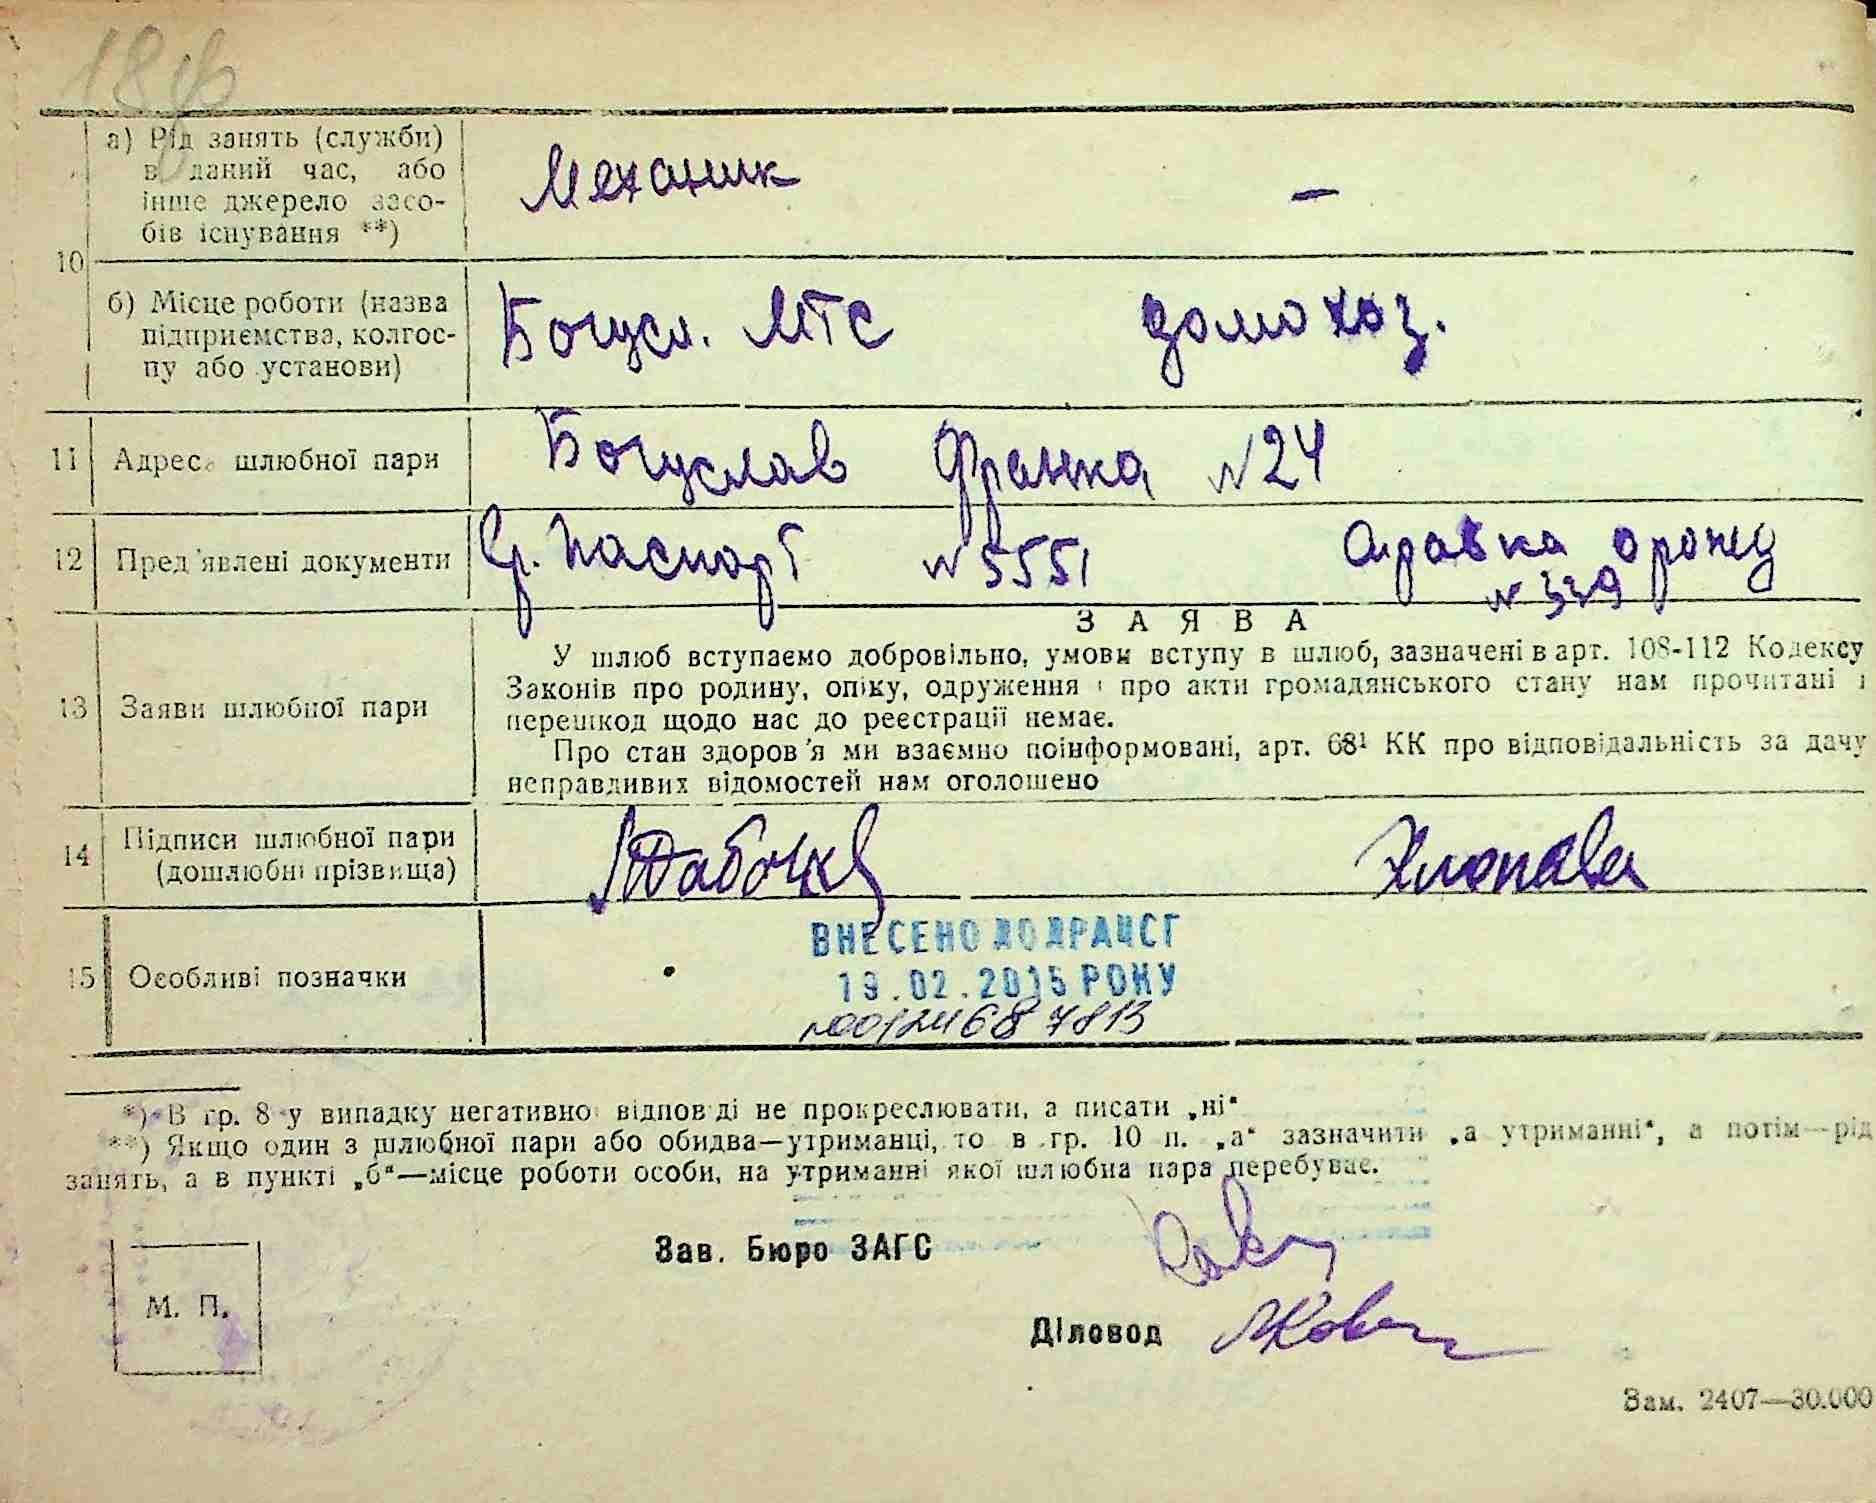 18
а) Рід занять (служби)
в даний час, або
інше джерело засо-
бів існування **)
Механик
–
10
б) Місце роботи (назва
підприємства, колгос-
пу або установи)
Богусл. МТС
домохоз.
11
Адреса шлюбної пари
Богуслав Франка №24
12
Пред'явлені документи
Паспорт №5551
справка
№ 339
З А Я В А
13
Заяви шлюбної пари
У шлюб вступаємо добровільно, умови вступу в шлюб, зазначені в арт. 108-112 Кодексу
Законів про родину, опіку, одруження і про акти громадянського стану нам прочитані і
перешкод щодо нас до реєстрації немає.
Про стан здоров'я ми взаємно поінформовані, арт. 68¹ КК про відповідальність за дачу
неправдивих відомостей нам оголошено
14
Підписи шлюбної пари
(дошлюбні прізвища)
15
Особливі позначки
ВНЕСЕНО ДО ДРАЦСГ
19.02.2015 РОКУ
№00124687813
*) В гр. 8 у випадку негативної відповіді не прокреслювати, а писати „ні“
**) Якщо один з шлюбної пари або обидва—утриманці, то в гр. 10 п. „а“ зазначити „а утриманні“, а потім—рід
занять, а в пункті „б“—місце роботи особи, на утриманні якої шлюбна пара перебуває.
Зав. Бюро ЗАГС
М. П.
Діловод
Зам. 2407—30.000